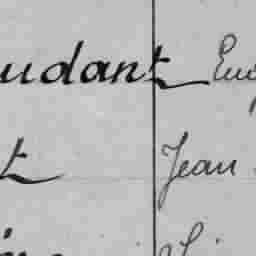 udant Eug
t Jean